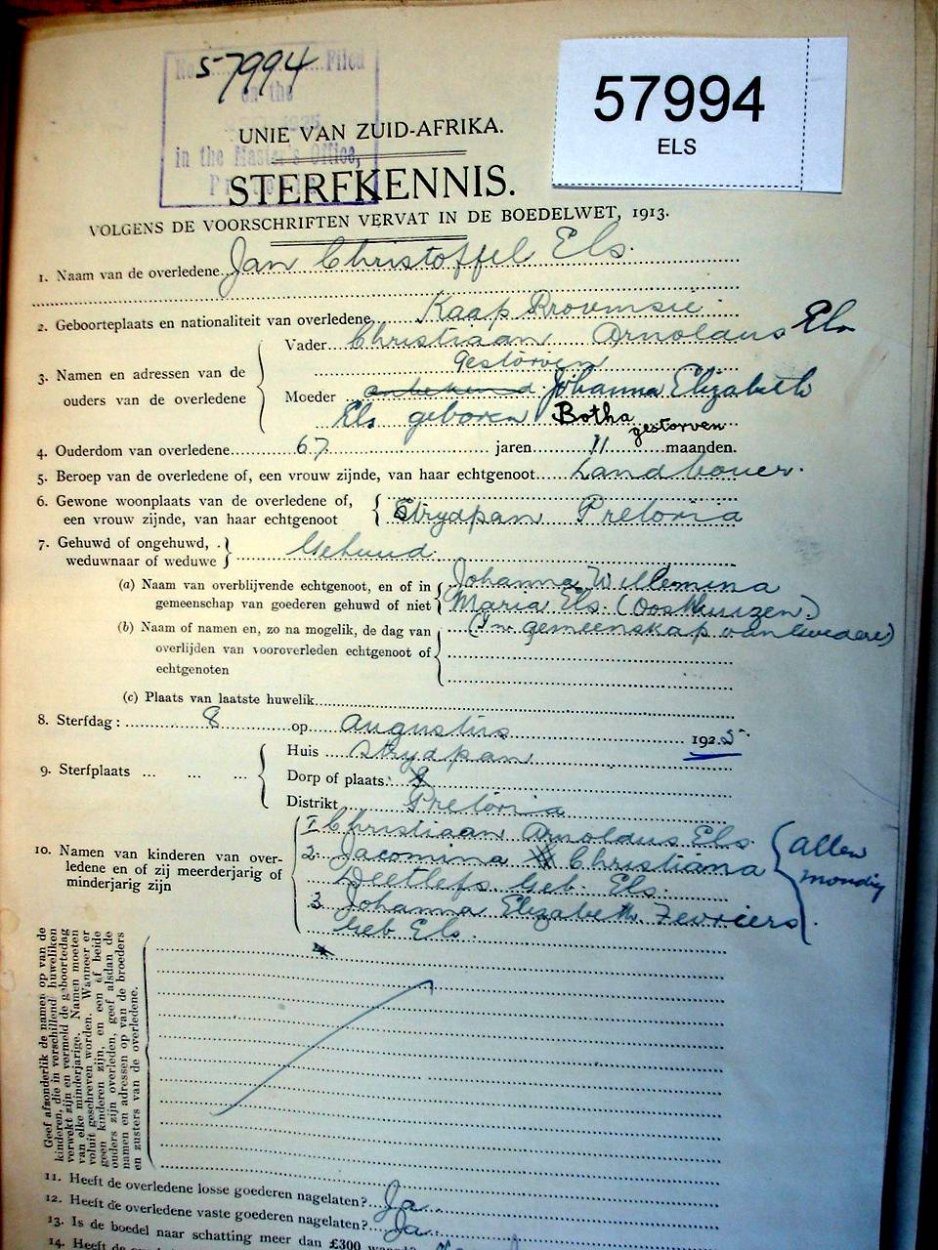 57994
ELS
No. 57994 Filed
on the
1925
in the Master's Office,
UNIE VAN ZUID-AFRIKA.
STERFKENNIS.
VOLGENS DE VOORSCHRIFTEN VERVAT IN DE BOEDELWET, 1913.
1. Naam van de overledene Jan Christoffel Els.
2. Geboorteplaats en nationaliteit van overledene Kaap Provinsie.
3. Namen en adressen van de ouders van de overledene
Vader Christiaan Arnoldus Els
Gestorven
Moeder onbekend Johanna Elizabeth
Els geboren Botha gestorven
4. Ouderdom van overledene 67 jaren 11 maanden.
5. Beroep van de overledene of, een vrouw zijnde, van haar echtgenoot Landbouer.
6. Gewone woonplaats van de overledene of,
een vrouw zijnde, van haar echtgenoot Strydpan Pretoria
7. Gehuwd of ongehuwd,
weduwnaar of weduwe Gehuud
(a) Naam van overblijvende echtgenoot, en of in Johanna Willemina
gemeenschap van goederen gehuwd of niet Maria Els. (Oosthuizen.)
(b) Naam of namen en, zo na mogelik, de dag van (In gemeenskap van Goedere)
overlijden van vooroverleden echtgenoot of
echtgenoten
(c) Plaats van laatste huwelik
8. Sterfdag: 8 op Augustus 1925.
9. Sterfplaats ... ... ...
Huis Strydpan
Dorp of plaats
Distrikt Pretoria
10. Namen van kinderen van over-
ledene en of zij meerderjarig of
minderjarig zijn
1 Christiaan Arnoldus Els.
2. Jacomina Christiana
Deetlefs Geb. Els.
3 Johanna Elizabeth
Geb Els.
allen
mondig
4
Geef afzonderlik de namen op van de
kinderen, die in verschillend huweliken
verwekt zijn en vermeld de geboortedag
van elke minderjarige. Namen moeten
voluit geschreven worden. Wanneer er
geen kinderen zijn, en een of beide
ouders zijn overleden, geef alsdan de
namen en adressen op van de broeders
en zusters van de overledene.
11. Heeft de overledene losse goederen nagelaten? Ja.
12. Heeft de overledene vaste goederen nagelaten? Ja.
13. Is de boedel naar schatting meer dan £300
14. Heeft de